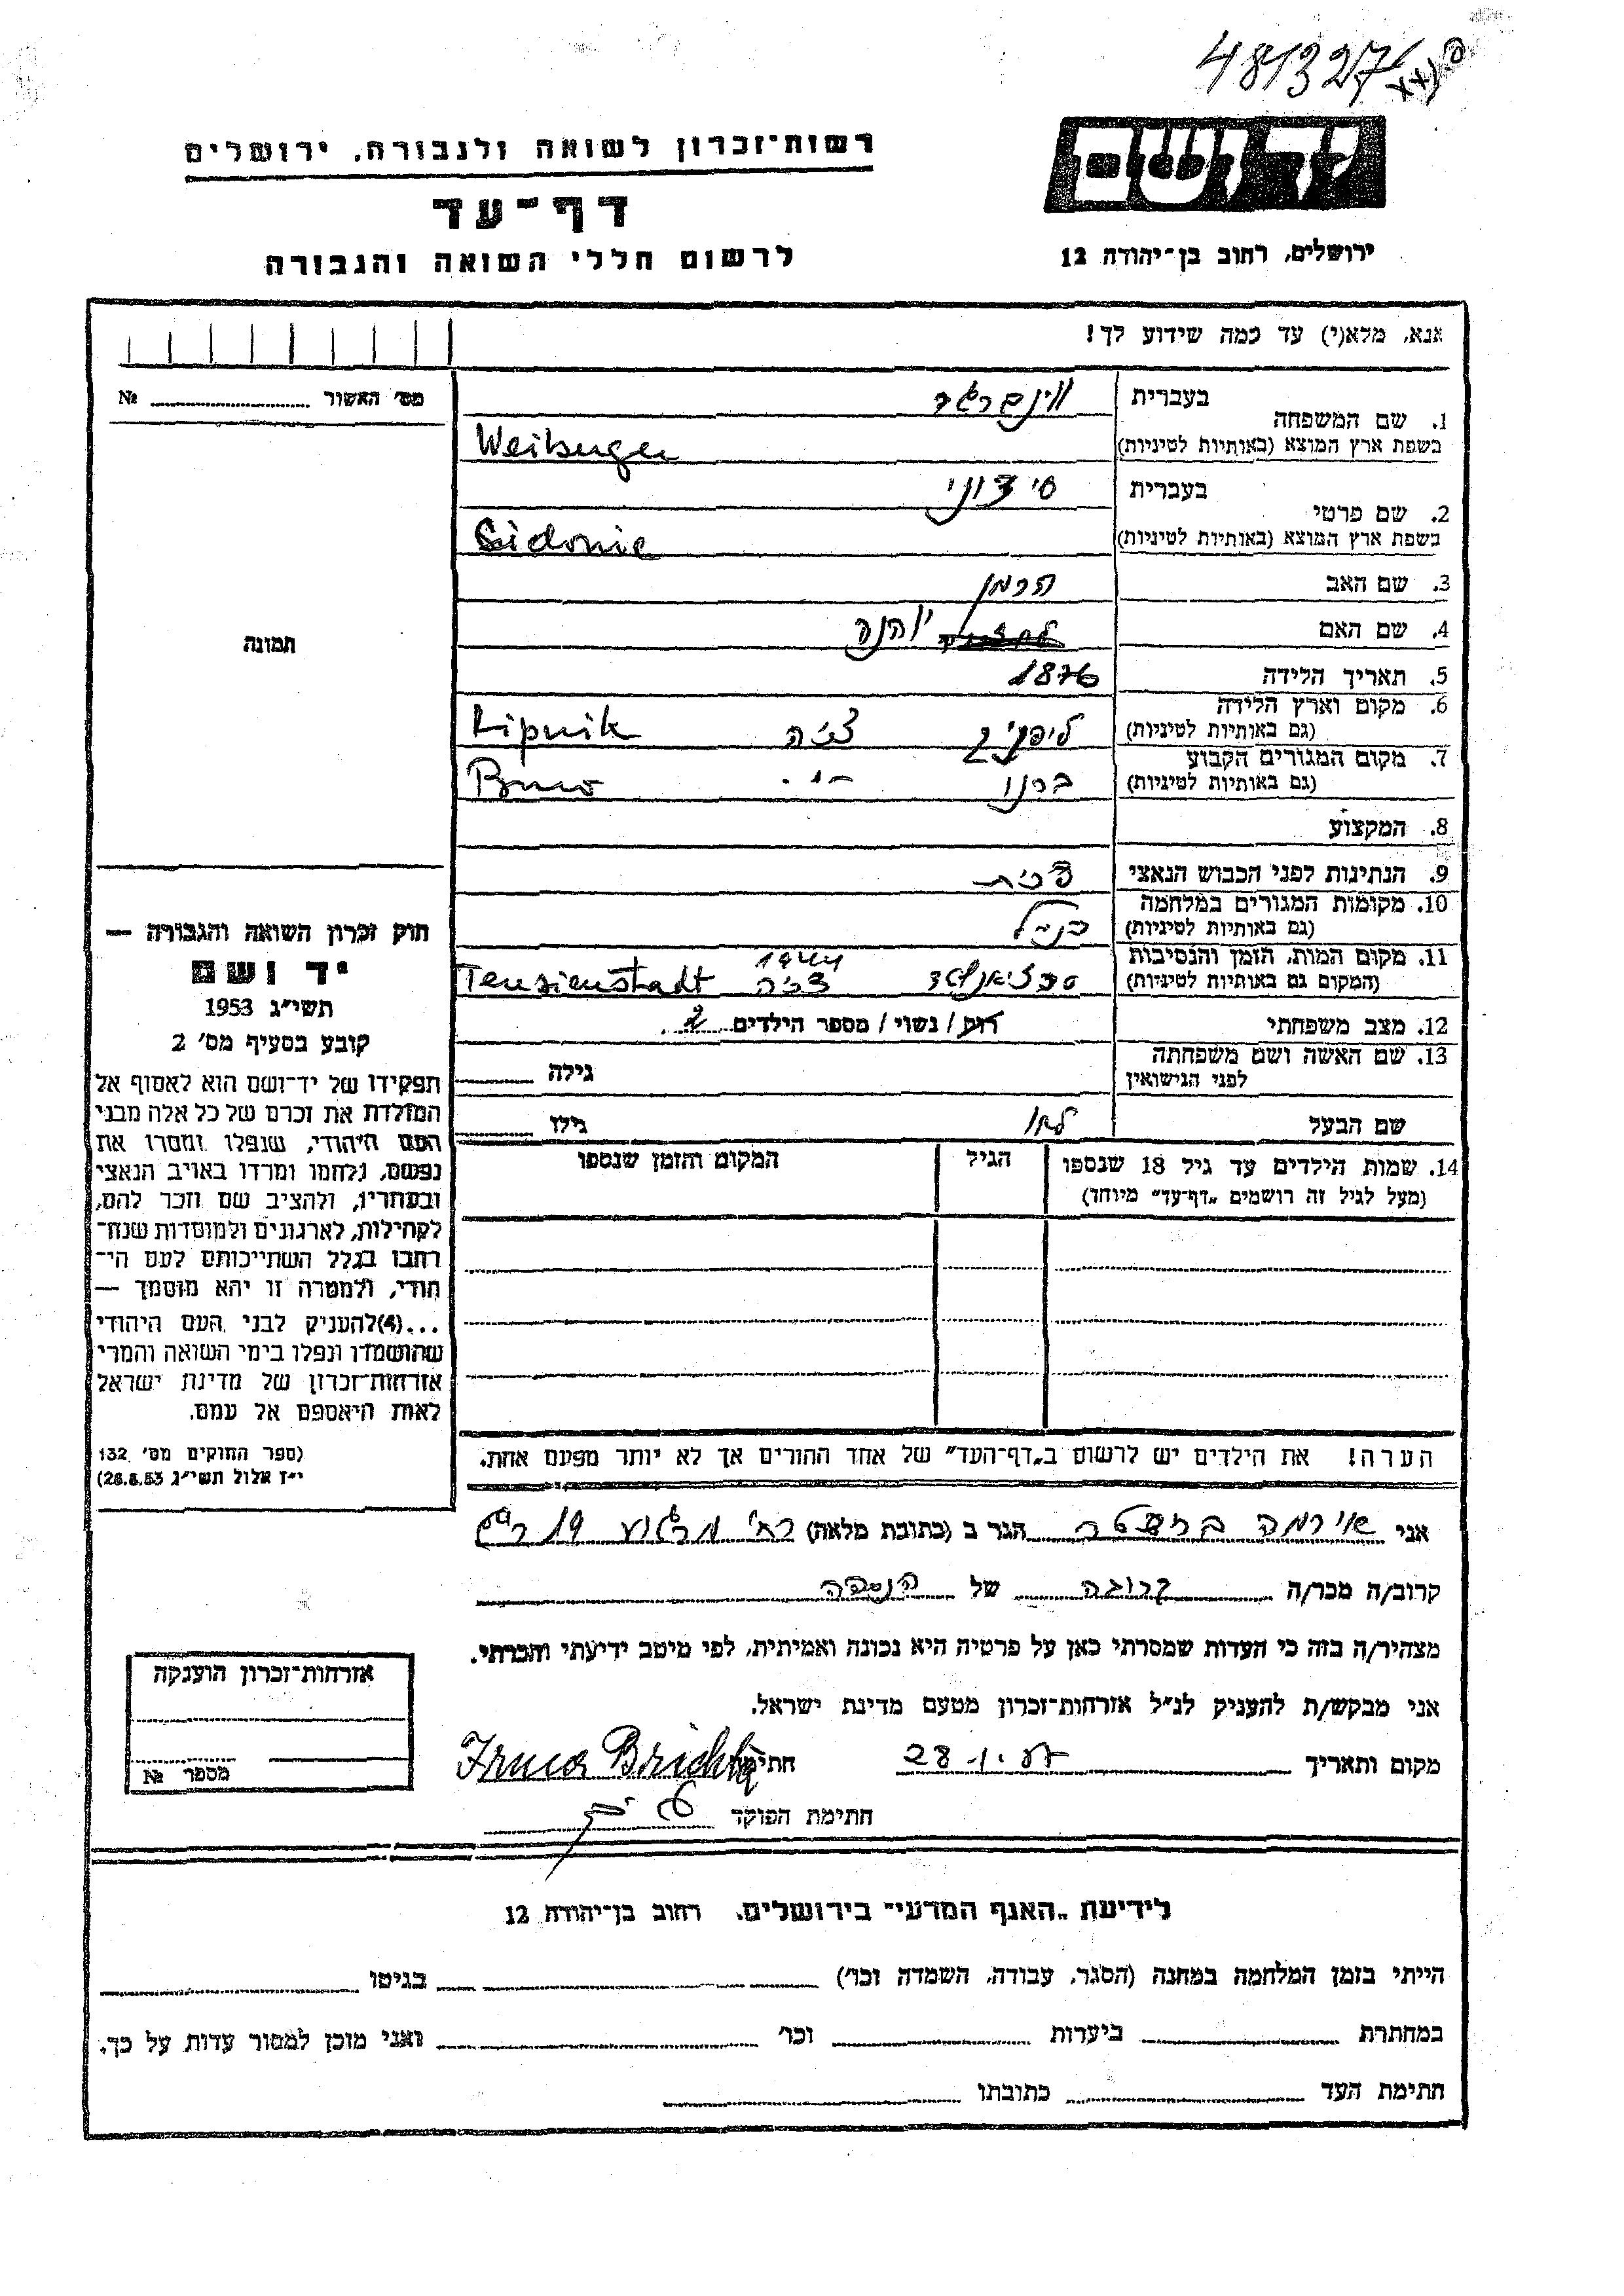 481327
רשות־זכרון לשואה ולגבורה, ירושלים
יד ושם
דף־עד
לרשום חללי השואה והגבורה
ירושלים, רחוב בן־יהודה 12
אנא, מלא(י) עד כמה שידוע לך!
מס׳ האשור № 
1. שם המשפחה
בעברית
ויינברגר
בשפת ארץ המוצא (באותיות לטיניות)
Weiberger
2. שם פרטי
בעברית
סידוני
בשפת ארץ המוצא (באותיות לטיניות)
Sidonie
3. שם האב הרמן
4. שם האם יוהנה
5. תאריך הלידה 1876
6. מקום וארץ הלידה
(גם באותיות לטיניות) ליפניק צ׳כיה Lipnik
7. מקום המגורים הקבוע
(גם באותיות לטיניות) ברנו -״- Brno
8. המקצוע
9. הנתינות לפני הכבוש הנאצי צ׳כית
10. מקומות המגורים במלחמה
(גם באותיות לטיניות) כנ״ל
11. מקום המות, הזמן והנסיבות 1944
(המקום גם באותיות לטיניות) צ׳כיה Teresienstadt
12. מצב משפחתי רווק / נשוי / מספר הילדים 2
13. שם האשה ושם משפחתה
לפני הנישואין גילה
שם הבעל לאו גילו
14. שמות הילדים עד גיל 18 שנספו הגיל המקום והזמן שנספו
(מעל לגיל זה רושמים „דף־עד״ מיוחד)
הערה! את הילדים יש לרשום ב„דף־העד״ של אחד ההורים אך לא יותר מפעם אחת.
תמונה
חוק זכרון השואה והגבורה —
יד ושם
תשי״ג 1953
קובע בסעיף מס׳ 2
תפקידו של יד־ושם הוא לאסוף אל
המולדת את זכרם של כל אלה מבני
העם היהודי, שנפלו ומסרו את
נפשם, נלחמו ומרדו באויב הנאצי
ובעוזריו, ולהציב שם וזכר להם,
לקהילות, לארגונים ולמוסדות שנח־
רבו בגלל השתייכותם לעם הי־
הודי, ולמטרה זו יהא מוסמך —
...(4)להעניק לבני העם היהודי
שהושמדו ונפלו בימי השואה והמרי
אזרחות־זכרון של מדינת ישראל
לאות היאספם אל עמם.
(ספר החוקים מס׳ 132
י״ז אלול תשי״ג 28.8.53)
אני אירמה בריכטה הגר ב (כתובת מלאה) רח׳ 19
קרוב/ה מכר/ה קרובה של הנספה
מצהיר/ה בזה כי העדות שמסרתי כאן על פרטיה היא נכונה ואמיתית, לפי מיטב ידיעתי והכרתי.
אני מבקש/ת להעניק לנ״ל אזרחות־זכרון מטעם מדינת ישראל.
מקום ותאריך 28.1.87 חתימה Irma Brichta
חתימת הפוקד
אזרחות־זכרון הוענקה
מספר №
לידיעת „האגף המדעי״ בירושלים, רחוב בן־יהודה 12
הייתי בזמן המלחמה במחנה (הסגר, עבודה, השמדה וכו׳) בגיטו
במחתרת ביערות וכו׳ ואני מוכן למסור עדות על כך.
חתימת העד כתובתו